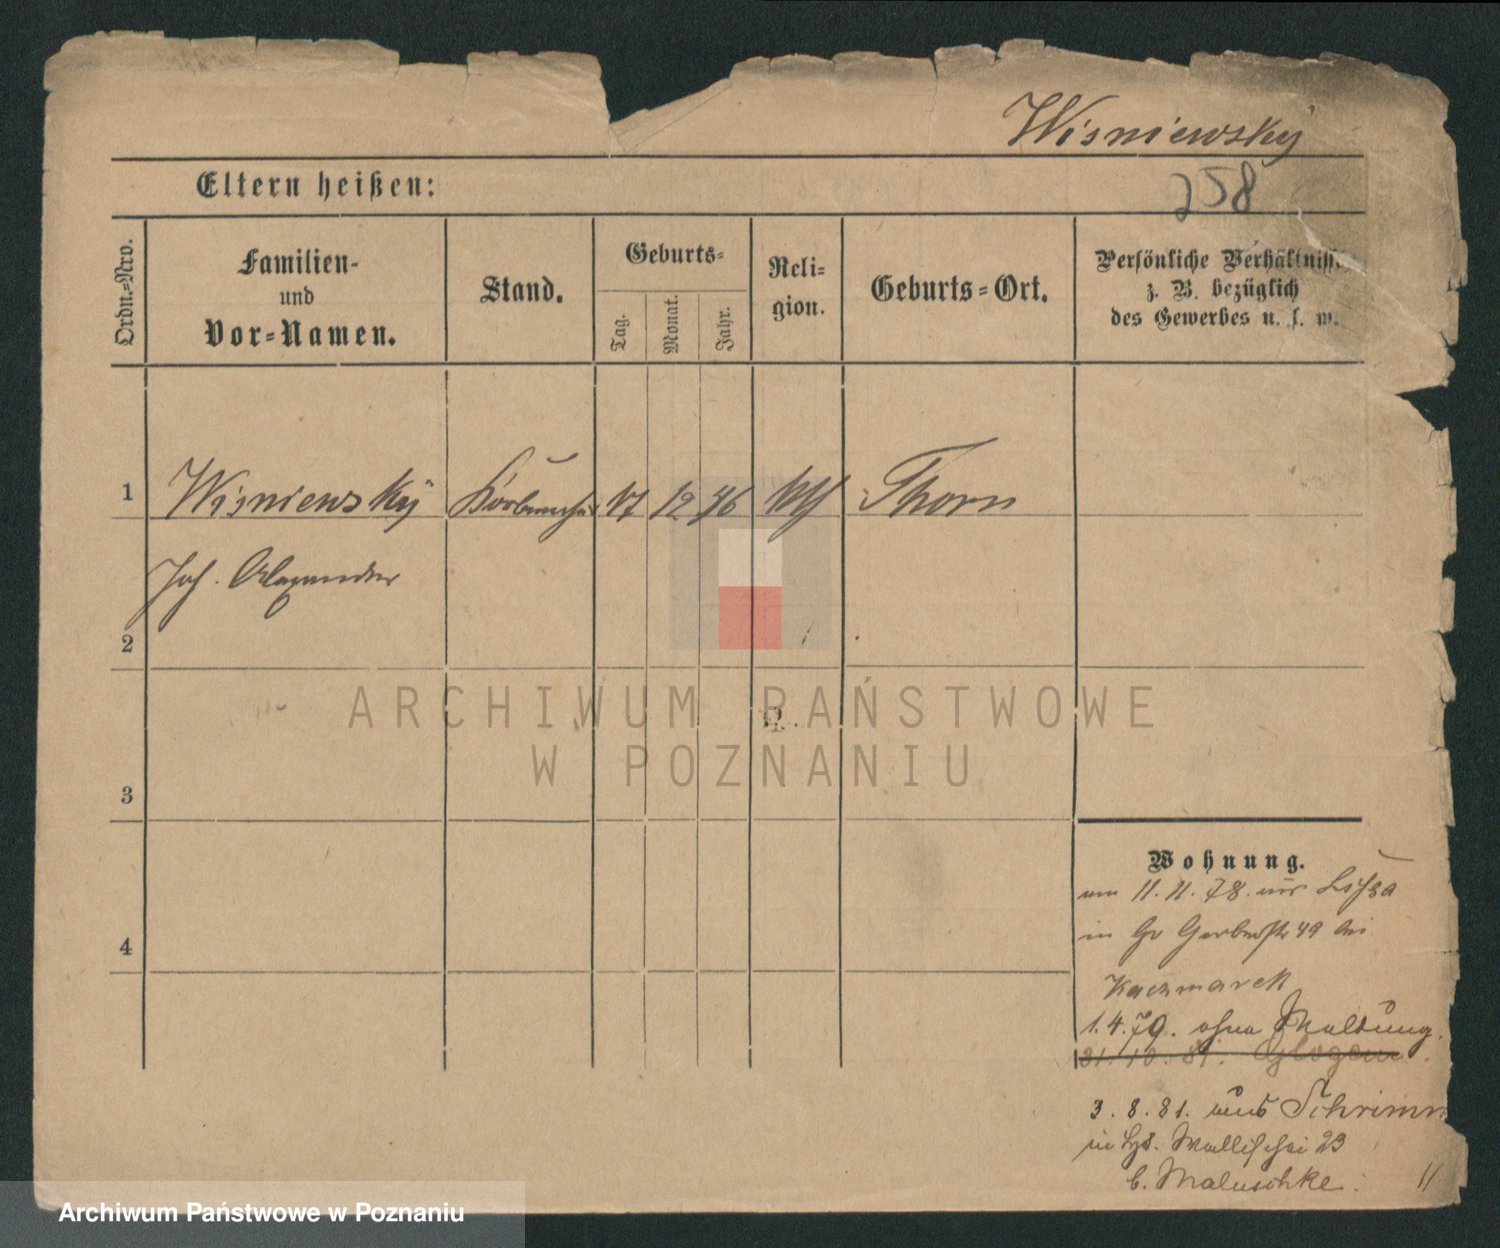 Wisniewsky
258
Eltern heißen:
Ordn.-Nro.
Familien-
und
Vor-Namen.
Stand.
Geburts-
Tag.
Monat.
Jahr.
Reli-
gion.
Geburts-Ort.
Persönliche Verhältnisse
z. B. bezüglich
des Gewerbes u. s. w.
1
Wisniewsky
17
12
46
Thorn
Joh. Alexander
2
3
4
ARCHIWUM PAŃSTWOWE
W POZNANIU
Wohnung.
11. 11. 78.
in Gr Gerberstr 49 bei
Kaczmarek
1. 4. 79. ohne Meldung.
31. 10. 81. Glogau
3. 8. 81. aus Schrimm
Wallischei 23
b. Maluschke.
Archiwum Państwowe w Poznaniu